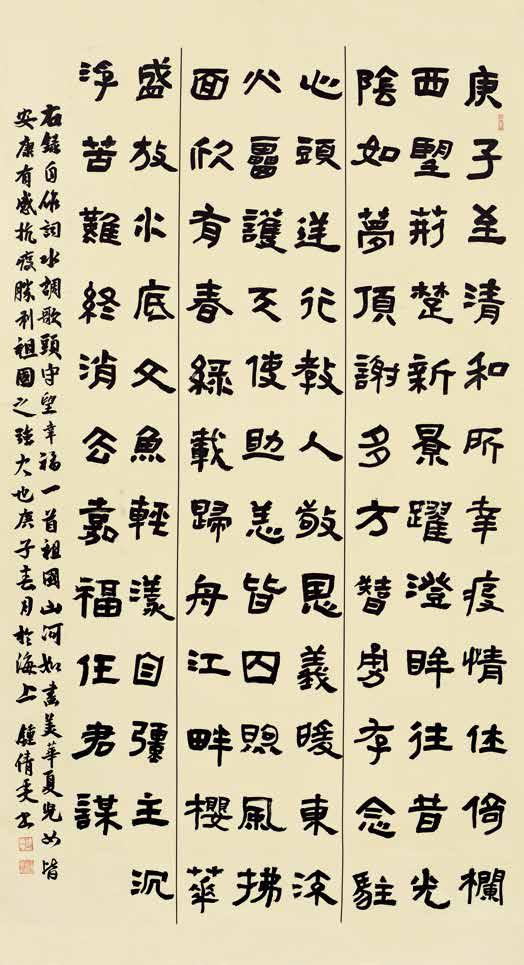 庚子至清和所幸疫情休倚欄
西望荊楚新景躍澄眸往昔光
陰如夢頂謝多方存念駐
心頭逆行教人敬恩義暖東流
火雷護天使助恙皆囚煦風拂
面欣有春綠載歸舟江畔櫻華
盛放水底文魚輕漾自彊主沉
浮苦難終消去嘉福任君謀
右錄自作詞水調歌頭守望幸福一首祖國山河如畫美華夏兒女皆
安康有感抗疫勝利祖國之強大也庚子春月於海上鍾倩書